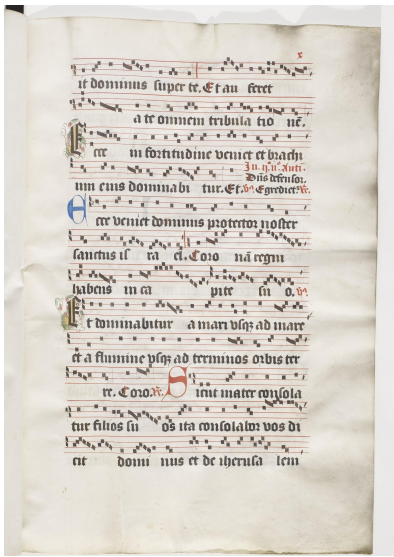 x
it dominus super te. Et au feret
a te omnem tribula tio nē.
Ecce in fortitudine veniet et brachi
In .ij. nº. Anti.
Dñs defensor.
um eius dominabi tur. Et. ꝟ. Egrediet. ℟.
Ecce veniet dominus protector noster
sanctus is ra el. Coro nā regni
habens in ca pite su o. ꝟ.
Et dominabitur a mari vsqꝫ ad mare
et a flumine vsqꝫ ad terminos orbis ter
re. Coro. ℟. Sicut mater consola
tur filios su os ita consolabor vos di
cit domi nus et de iherusa lem